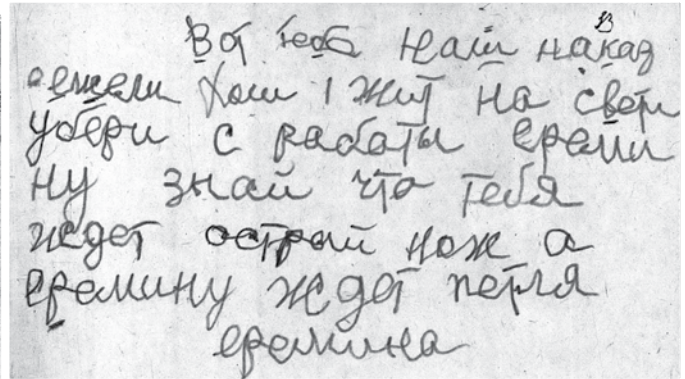 13
Вот тебе наш наказ
ежели хош жит на свети
убери с работы ереми
ну знай что тебя
ждет острай нож а
еремину ждет петля
еремина